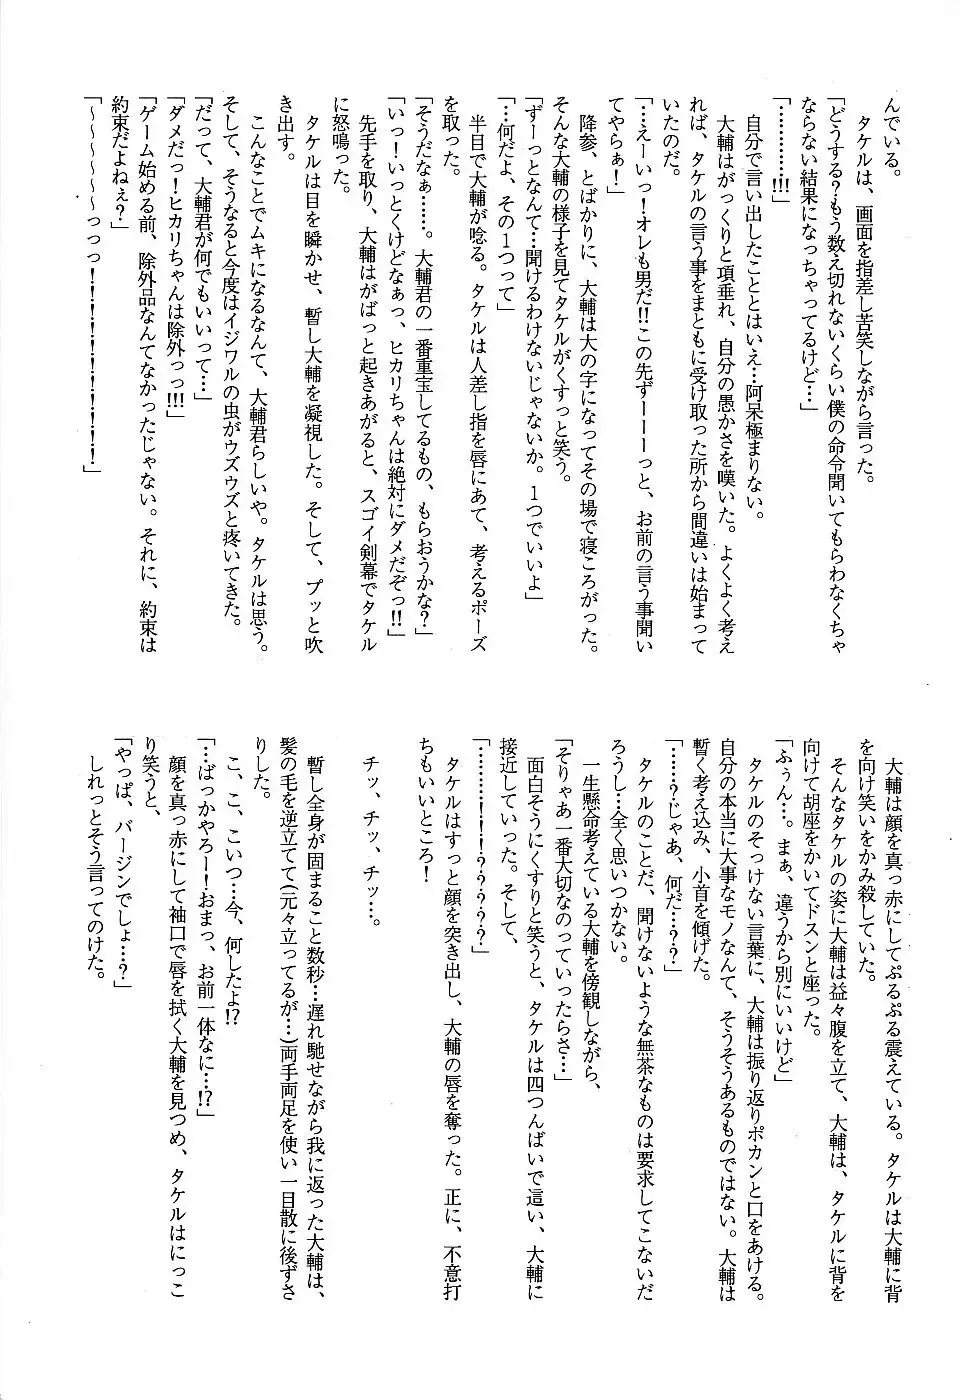 んでいる。
　タケルは、画面を指差し苦笑しながら言った。
「どうする?もう数え切れないくらい僕の命令聞いてもらわなくちゃ
ならない結果になっちゃってるけど…」
「…………!!!」
　自分で言い出したこととはいえ…阿呆極まりない。
　大輔はがっくりと項垂れ、自分の愚かさを嘆いた。よくよく考え
れば、タケルの言う事をまともに受け取った所から間違いは始まって
いたのだ。
「…えーいっ!オレも男だ!!この先ずーーーっと、お前の言う事聞い
てやらぁ!」
　降参、とばかりに、大輔は大の字になってその場で寝ころがった。
そんな大輔の様子を見てタケルがくすっと笑う。
「ずーっとなんて…聞けるわけないじゃないか。1つでいいよ」
「…何だよ、その1つって」
　半目で大輔が唸る。タケルは人差し指を唇にあて、考えるポーズ
を取った。
「そうだなぁ……。大輔君の一番重宝してるもの、もらおうかな?」
「いっ!いっとくけどなぁっ、ヒカリちゃんは絶対にダメだぞっ!!」
　先手を取り、大輔はがばっと起きあがると、スゴイ剣幕でタケル
に怒鳴った。
　タケルは目を瞬かせ、暫し大輔を凝視した。そして、プッと吹
き出す。
　こんなことでムキになるなんて、大輔君らしいや。タケルは思う。
そして、そうなると今度はイジワルの虫がウズウズと疼いてきた。
「だって、大輔君が何でもいいって…」
「ダメだっ!ヒカリちゃんは除外っっ!!!」
「ゲーム始める前、除外品なんてなかったじゃない。それに、約束は
約束だよねぇ?」
「〜〜〜〜〜〜っっっ!!!!!!!!!!」
　大輔は顔を真っ赤にしてぷるぷる震えている。タケルは大輔に背
を向け笑いをかみ殺していた。
　そんなタケルの姿に大輔は益々腹を立て、大輔は、タケルに背を
向けて胡座をかいてドスンと座った。
「ふぅん…。まぁ、違うから別にいいけど」
　タケルのそっけない言葉に、大輔は振り返りポカンと口をあける。
自分の本当に大事なモノなんて、そうそうあるものではない。大輔は
暫く考え込み、小首を傾げた。
「……?じゃあ、何だ…??」
　タケルのことだ、聞けないような無茶なものは要求してこないだ
ろうし…全く思いつかない。
　一生懸命考えている大輔を傍観しながら、
「そりゃあ一番大切なのっていったらさ…」
　面白そうにくすりと笑うと、タケルは四つんばいで這い、大輔に
接近していった。そして、
「………!…!!????」
　タケルはすっと顔を突き出し、大輔の唇を奪った。正に、不意打
ちもいいところ!
　チッ、チッ、チッ…。
　暫し全身が固まること数秒…遅れ馳せながら我に返った大輔は、
髪の毛を逆立てて(元々立ってるが…)両手両足を使い一目散に後ずさ
りした。
　こ、こ、こいつ…今、何したよ!?
「…ばっかやろー!おまっ、お前一体なに…!?」
　顔を真っ赤にして袖口で唇を拭く大輔を見つめ、タケルはにっこ
り笑うと、
「やっぱ、バージンでしょ…?」
　しれっとそう言ってのけた。